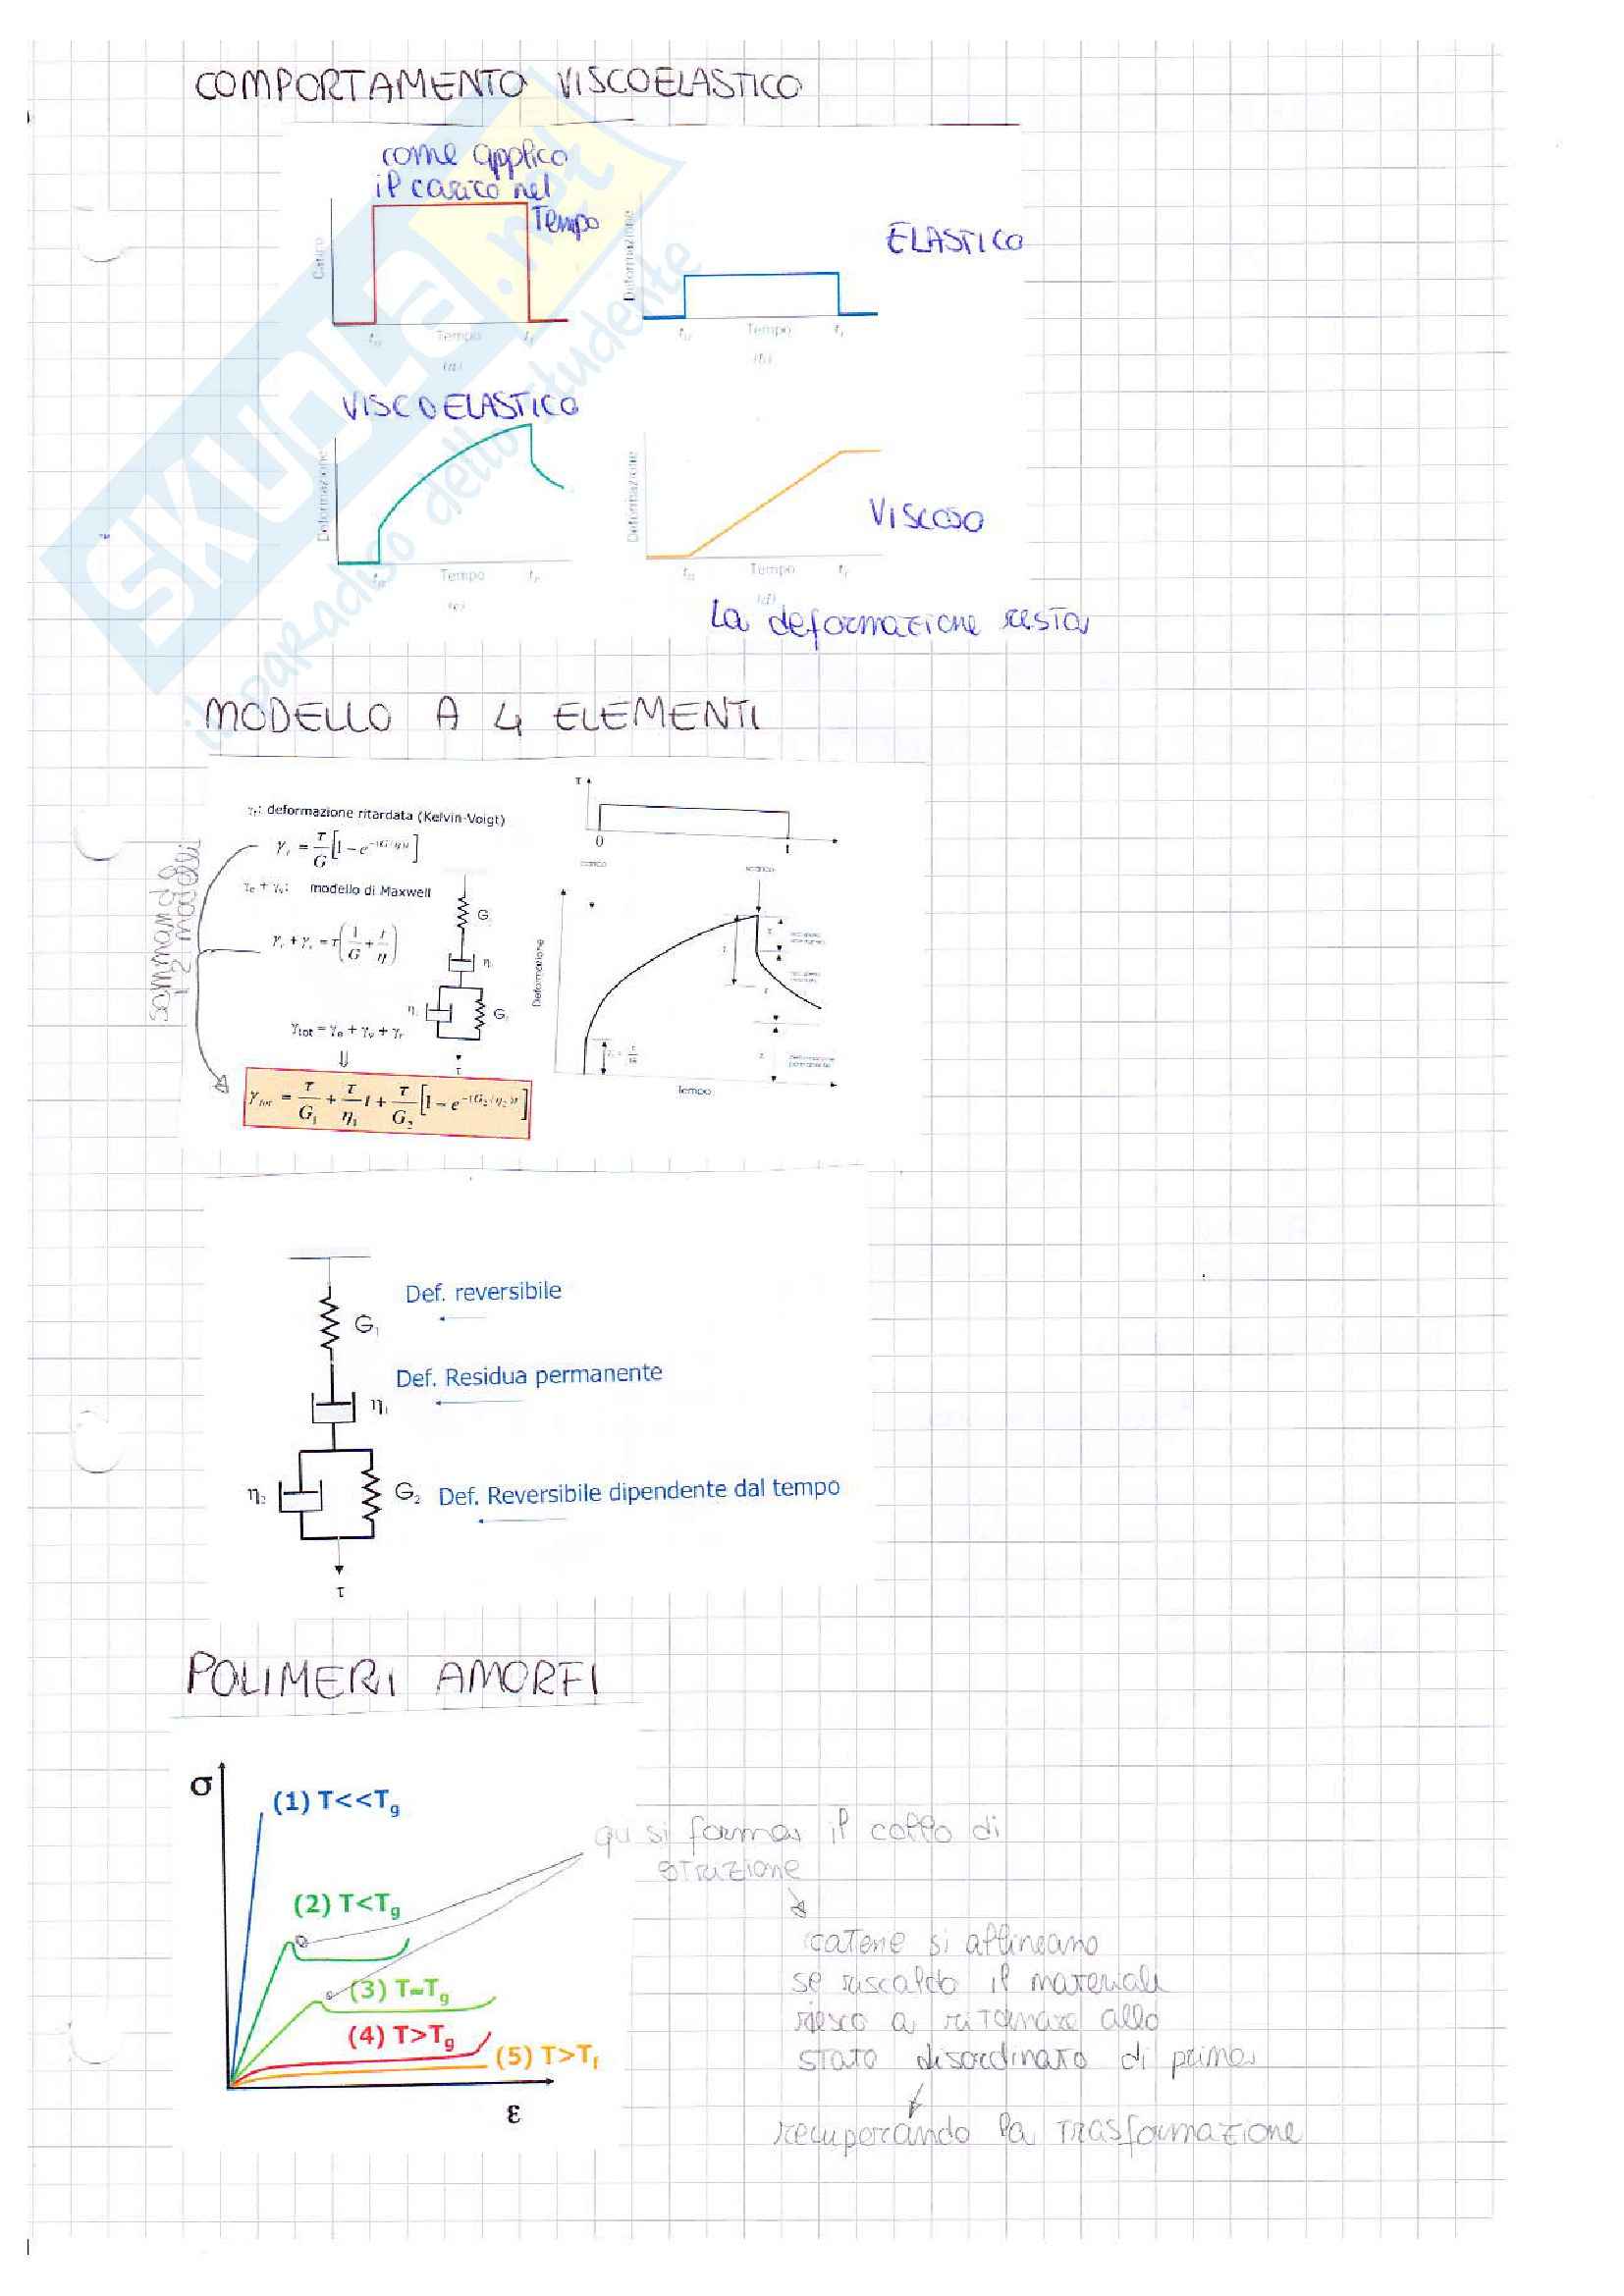 COMPORTAMENTO VISCOELASTICO
come applico
il carico nel
Tempo
Carico
Tempo
(a)
Deformazione
ELASTICO
Tempo
(b)
VISCOELASTICO
Deformazione
Tempo
(c)
Deformazione
VISCOSO
Tempo
(d)
La deformazione resta
SKUOLA.net
il paradiso dello studente
MODELLO A 4 ELEMENTI
γr: deformazione ritardata (Kelvin-Voigt)
γr = τ/G [1 − e^−(G/η)t]
γe + γv: modello di Maxwell
γe + γv = τ(1/G + t/η)
sommando
i 2 modelli
γtot = γe + γv + γr
⇓
γtot = τ/G1 + τ/η1 t + τ/G2 [1 − e^−(G2/η2)t]
τ
0
t
Deformazione
Tempo
Def. reversibile
G1
Def. Residua permanente
η1
η2
G2 Def. Reversibile dipendente dal tempo
τ
POLIMERI AMORFI
σ
(1) T<<Tg
(2) T<Tg
(3) T≈Tg
(4) T>Tg
(5) T>Tf
ε
qu si forma il collo di
strizione
catene si allineano
se riscaldo il materiale
riesco a ritornare allo
stato disordinato di prima
recuperando la trasformazione